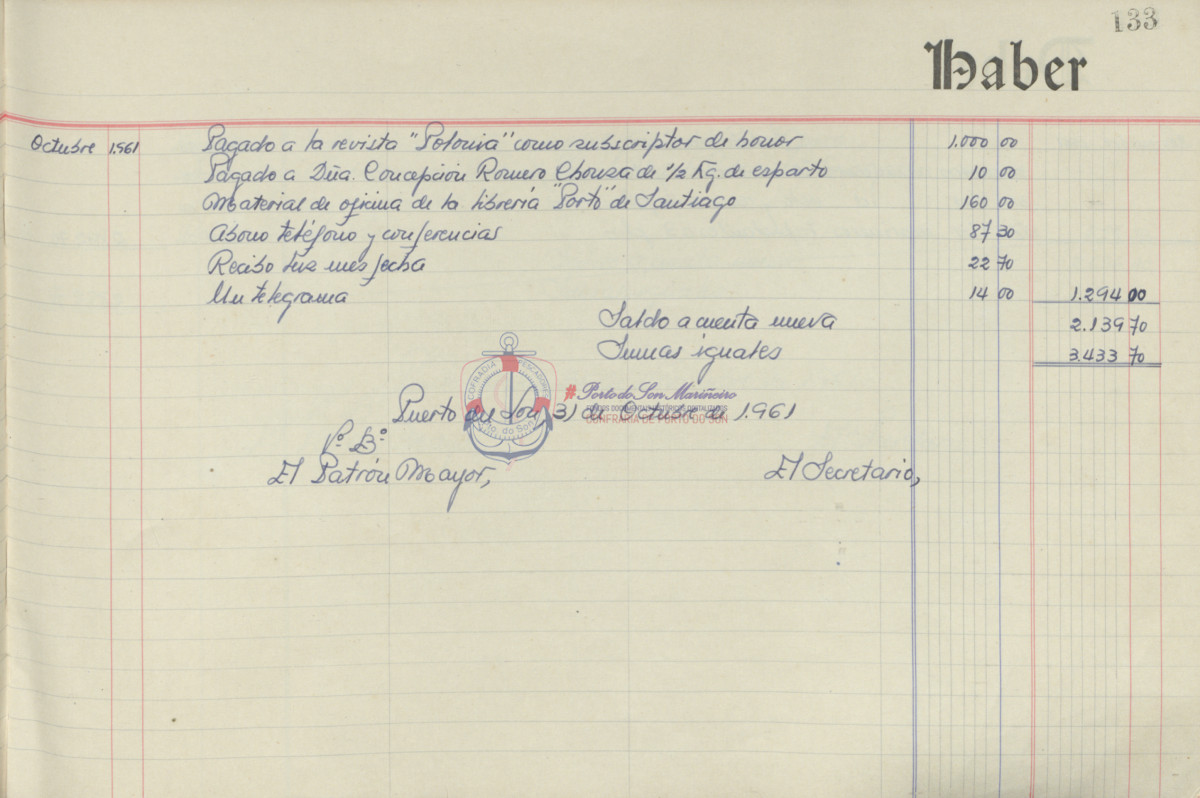 133
Haber
Octubre 1.961 Pagado a la revista "Polonia" como subscriptor de honor 1.000 00
Pagado a Dña. Concepción Romero Chouza de 1/2 Kg. de esparto 10 00
Material de oficina de la librería "Porto" de Santiago 160 00
Abono teléfono y conferencias 87 30
Recibo luz mes fecha 22 70
Un telegrama 14 00 1.294 00
Saldo a cuenta nueva 2.139 70
Sumas iguales 3.433 70
COFRADIA PESCADORES
Pto. do Son
#Porto do Son Mariñeiro
CONFRARÍA DE PORTO DO SON
Puerto del Son, 31 de Octubre de 1.961
Vº. Bº.
El Patrón Mayor, El Secretario,